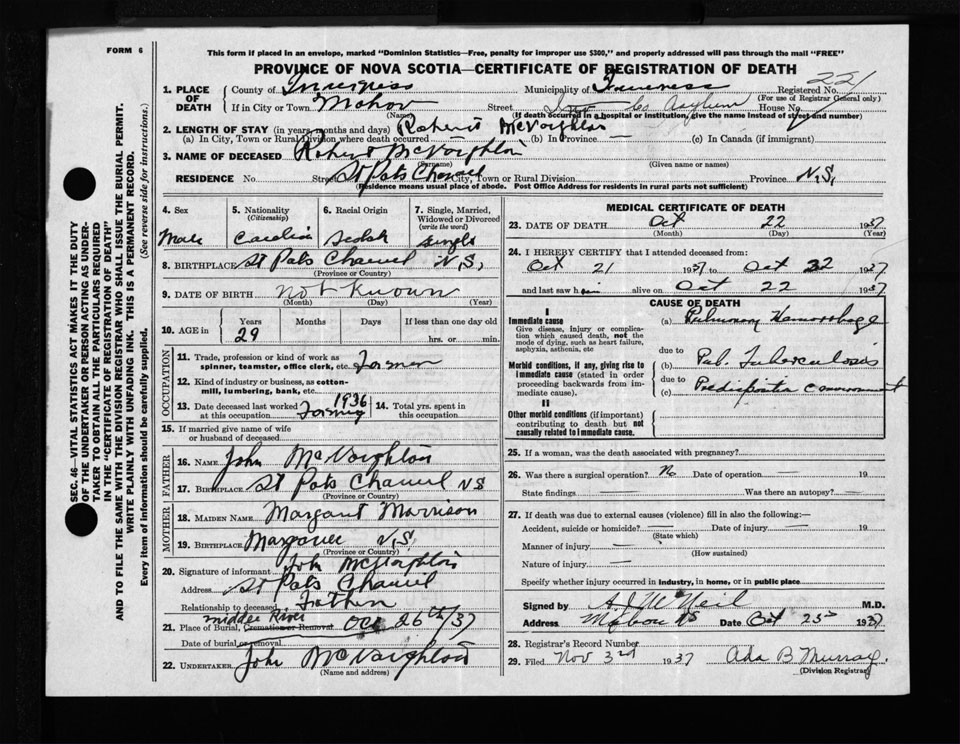 FORM 6
This form if placed in an envelope, marked "Dominion Statistics—Free, penalty for improper use $300," and properly addressed will pass through the mail "FREE"
PROVINCE OF NOVA SCOTIA—CERTIFICATE OF REGISTRATION OF DEATH
221
1. PLACE OF DEATH County of Inverness Municipality of Inverness Registered No.
(For use of Registrar General only)
If in City or Town Mabou Street Co Asylum House No.
(Name) (If death occurred in a hospital or institution, give the name instead of street and number)
2. LENGTH OF STAY (in years, months and days)
(a) In City, Town or Rural Division where death occurred (b) In Province (c) In Canada (if immigrant)
3. NAME OF DECEASED
(Surname) (Given name or names)
RESIDENCE No. Street St Pats Channel City, Town or Rural Division Province N.S.
(Residence means usual place of abode. Post Office Address for residents in rural parts not sufficient)
4. Sex Male
5. Nationality (Citizenship)
6. Racial Origin Scotch
7. Single, Married, Widowed or Divorced (write the word) Single
8. BIRTHPLACE St Pats Channel N.S.
(Province or Country)
9. DATE OF BIRTH not known
(Month) (Day) (Year)
10. AGE in Years Months Days If less than one day old
29 hrs. or min.
OCCUPATION
11. Trade, profession or kind of work as spinner, teamster, office clerk, etc. Farmer
12. Kind of industry or business, as cotton-mill, lumbering, bank, etc.
13. Date deceased last worked at this occupation 1936 Farming
14. Total yrs. spent in this occupation
15. If married give name of wife or husband of deceased
FATHER
16. NAME John
17. BIRTHPLACE St Pats Channel NS
(Province or Country)
MOTHER
18. MAIDEN NAME Margaret Morrison
19. BIRTHPLACE Margaree N.S.
(Province or Country)
20. Signature of informant John
Address St Pats Channel
Relationship to deceased Father
21. Place of Burial, Cremation or Removal Middle River Oct 26th/37
Date of burial or removal
22. UNDERTAKER John
(Name and address)
MEDICAL CERTIFICATE OF DEATH
23. DATE OF DEATH Oct 22 1937
(Month) (Day) (Year)
24. I HEREBY CERTIFY that I attended deceased from:
Oct 21 1937 to Oct 22 1937
and last saw him alive on Oct 22 1937
CAUSE OF DEATH
I
Immediate cause (a) Pulmonary Hemorrhage
Give disease, injury or complication which caused death, not the mode of dying, such as heart failure, asphyxia, asthenia, etc
due to
Morbid conditions, if any, giving rise to immediate cause (stated in order proceeding backwards from immediate cause). (b) Pul. Tuberculosis
due to
(c)
II
Other morbid conditions (if important) contributing to death but not causally related to immediate cause.
25. If a woman, was the death associated with pregnancy?
26. Was there a surgical operation? No Date of operation 19
State findings Was there an autopsy?
27. If death was due to external causes (violence) fill in also the following:—
Accident, suicide or homicide? Date of injury 19
(State which)
Manner of injury
(How sustained)
Nature of injury
Specify whether injury occurred in industry, in home, or in public place
Signed by A J McNeil M.D.
Address Mabou NS Date Oct 23rd 1937
28. Registrar's Record Number
29. Filed Nov 3rd 1937 Ada B Murray
(Division Registrar)
SEC. 46—VITAL STATISTICS ACT MAKES IT THE DUTY
OF THE UNDERTAKER OR PERSON ACTING AS UNDER-
TAKER TO OBTAIN ALL THE PARTICULARS REQUIRED
IN THE "CERTIFICATE OF REGISTRATION OF DEATH"
AND TO FILE THE SAME WITH THE DIVISION REGISTRAR WHO SHALL ISSUE THE BURIAL PERMIT.
WRITE PLAINLY WITH UNFADING INK. THIS IS A PERMANENT RECORD.
Every item of information should be carefully supplied. (See reverse side for instructions.)